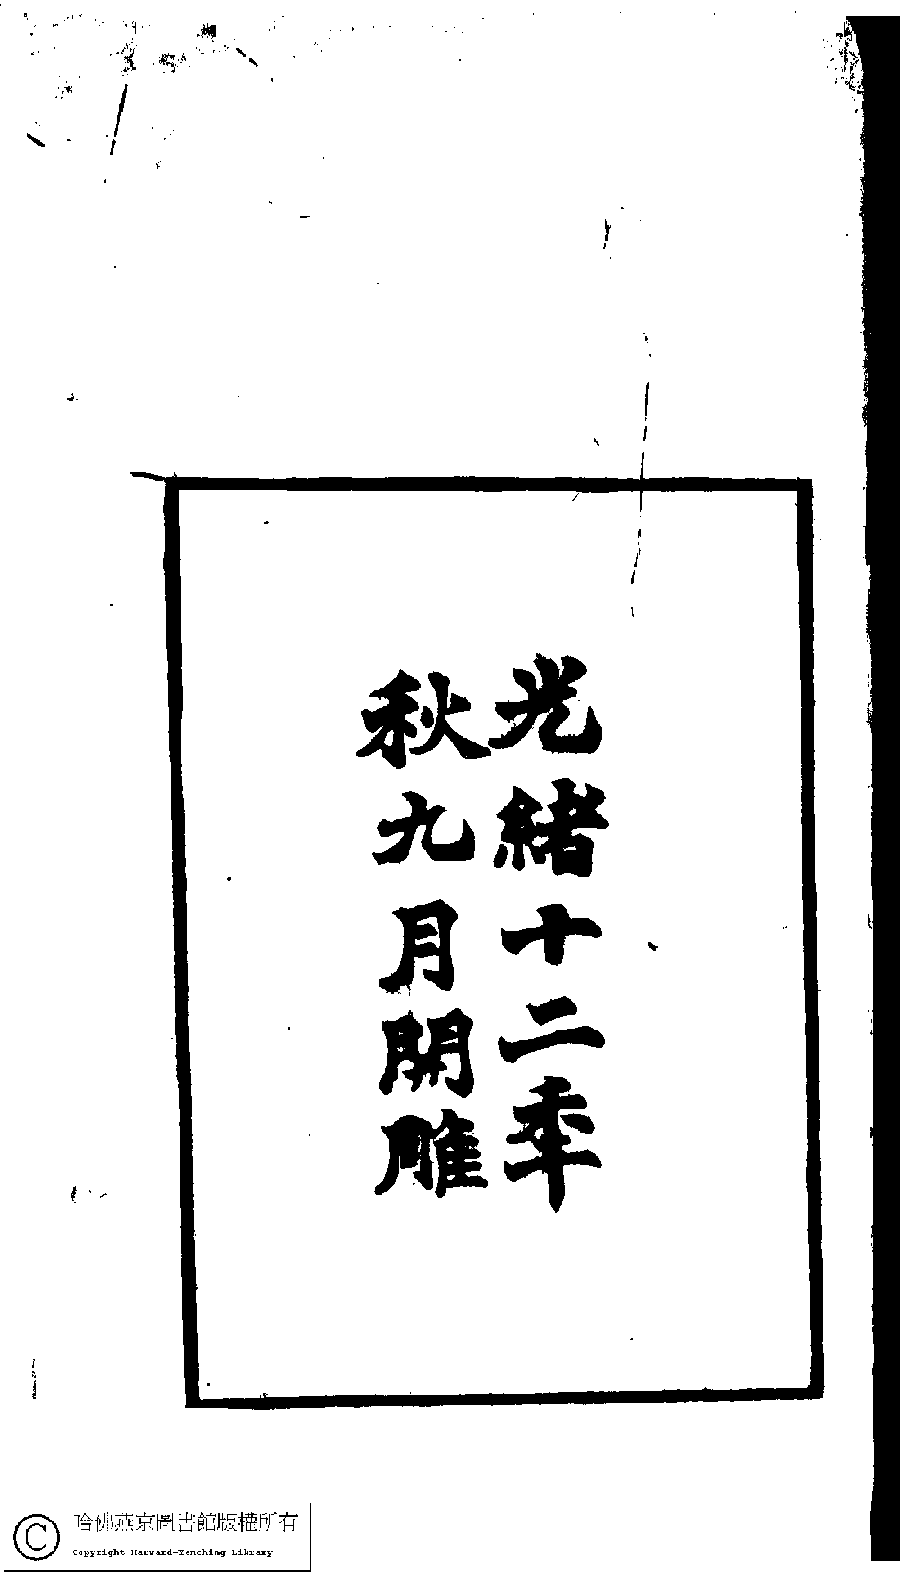 光緒十二秊
秋九月開雕
哈佛燕京圖書館版權所有
Copyright Harvard-Yenching Library